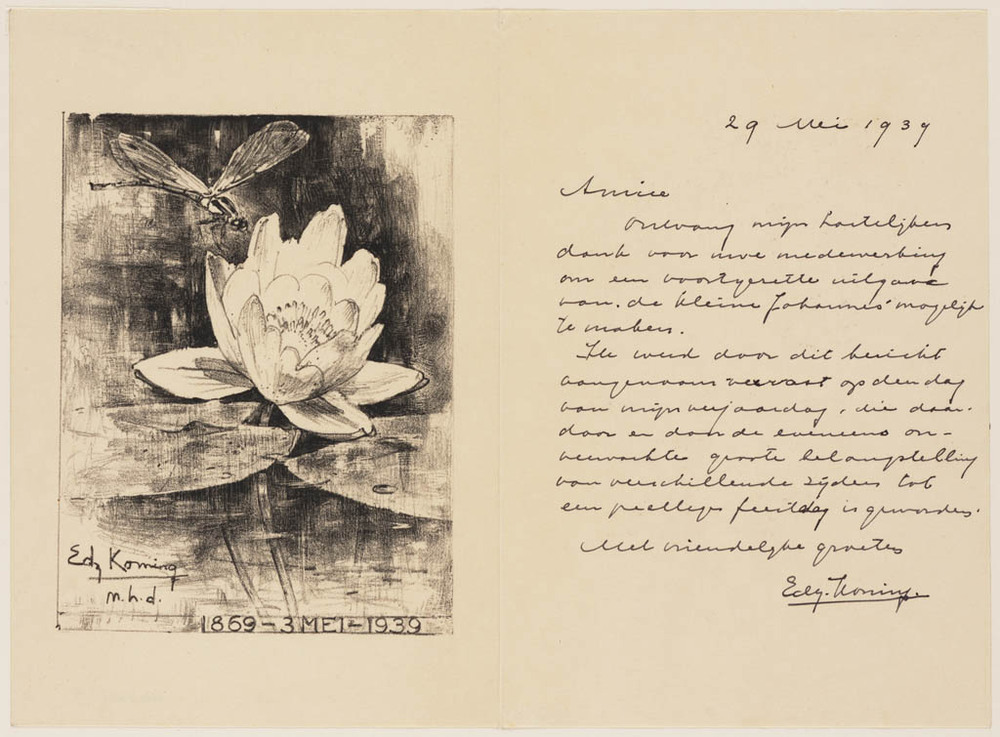 Edz Koning
n.h.d.
1869-3 MEI-1939
29 Mei 1939
Amice
Ontvang mijn hartelijken
dank voor uwe medewerking
om een voortgezette uitgave
van 'de kleine Johannes' mogelijk
te maken.
Ik werd door dit bericht
aangenaam verrast op den dag
van mijn verjaardag, die daar-
door en door de eveneens on-
verwachte groote belangstelling
van verschillende zijden tot
een prettigen feestdag is geworden.
Met vriendelijke groeten
Edz. Koning.